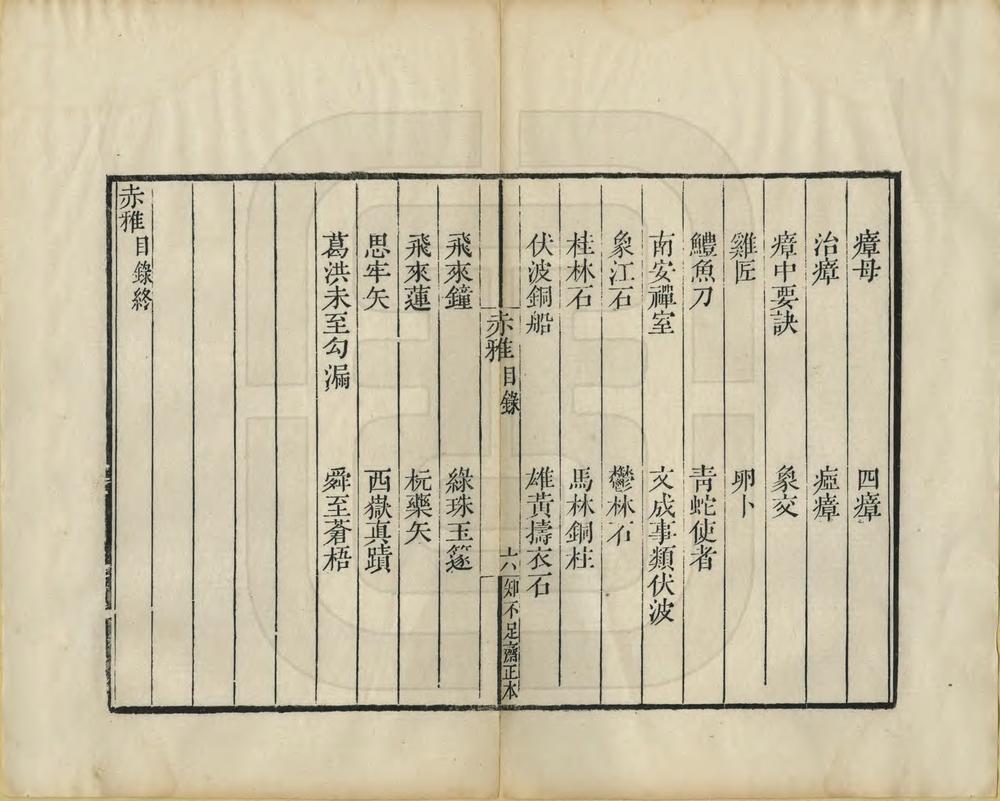 瘴母 四瘴
治瘴 瘂瘴
瘴中要訣 象交
雞匠 卵卜
鱧魚刀 青蛇使者
南安禪室 文成事類伏波
象江石 鬱林石
桂林石 馬林銅柱
伏波銅船 雄黃擣衣石
赤雅 目錄 六 知不足齋正本
飛來鐘 綠珠玉篴
飛來蓮 杬藥矢
思牢矢 西嶽真蹟
葛洪未至勾漏 舜至蒼梧
赤雅目錄終